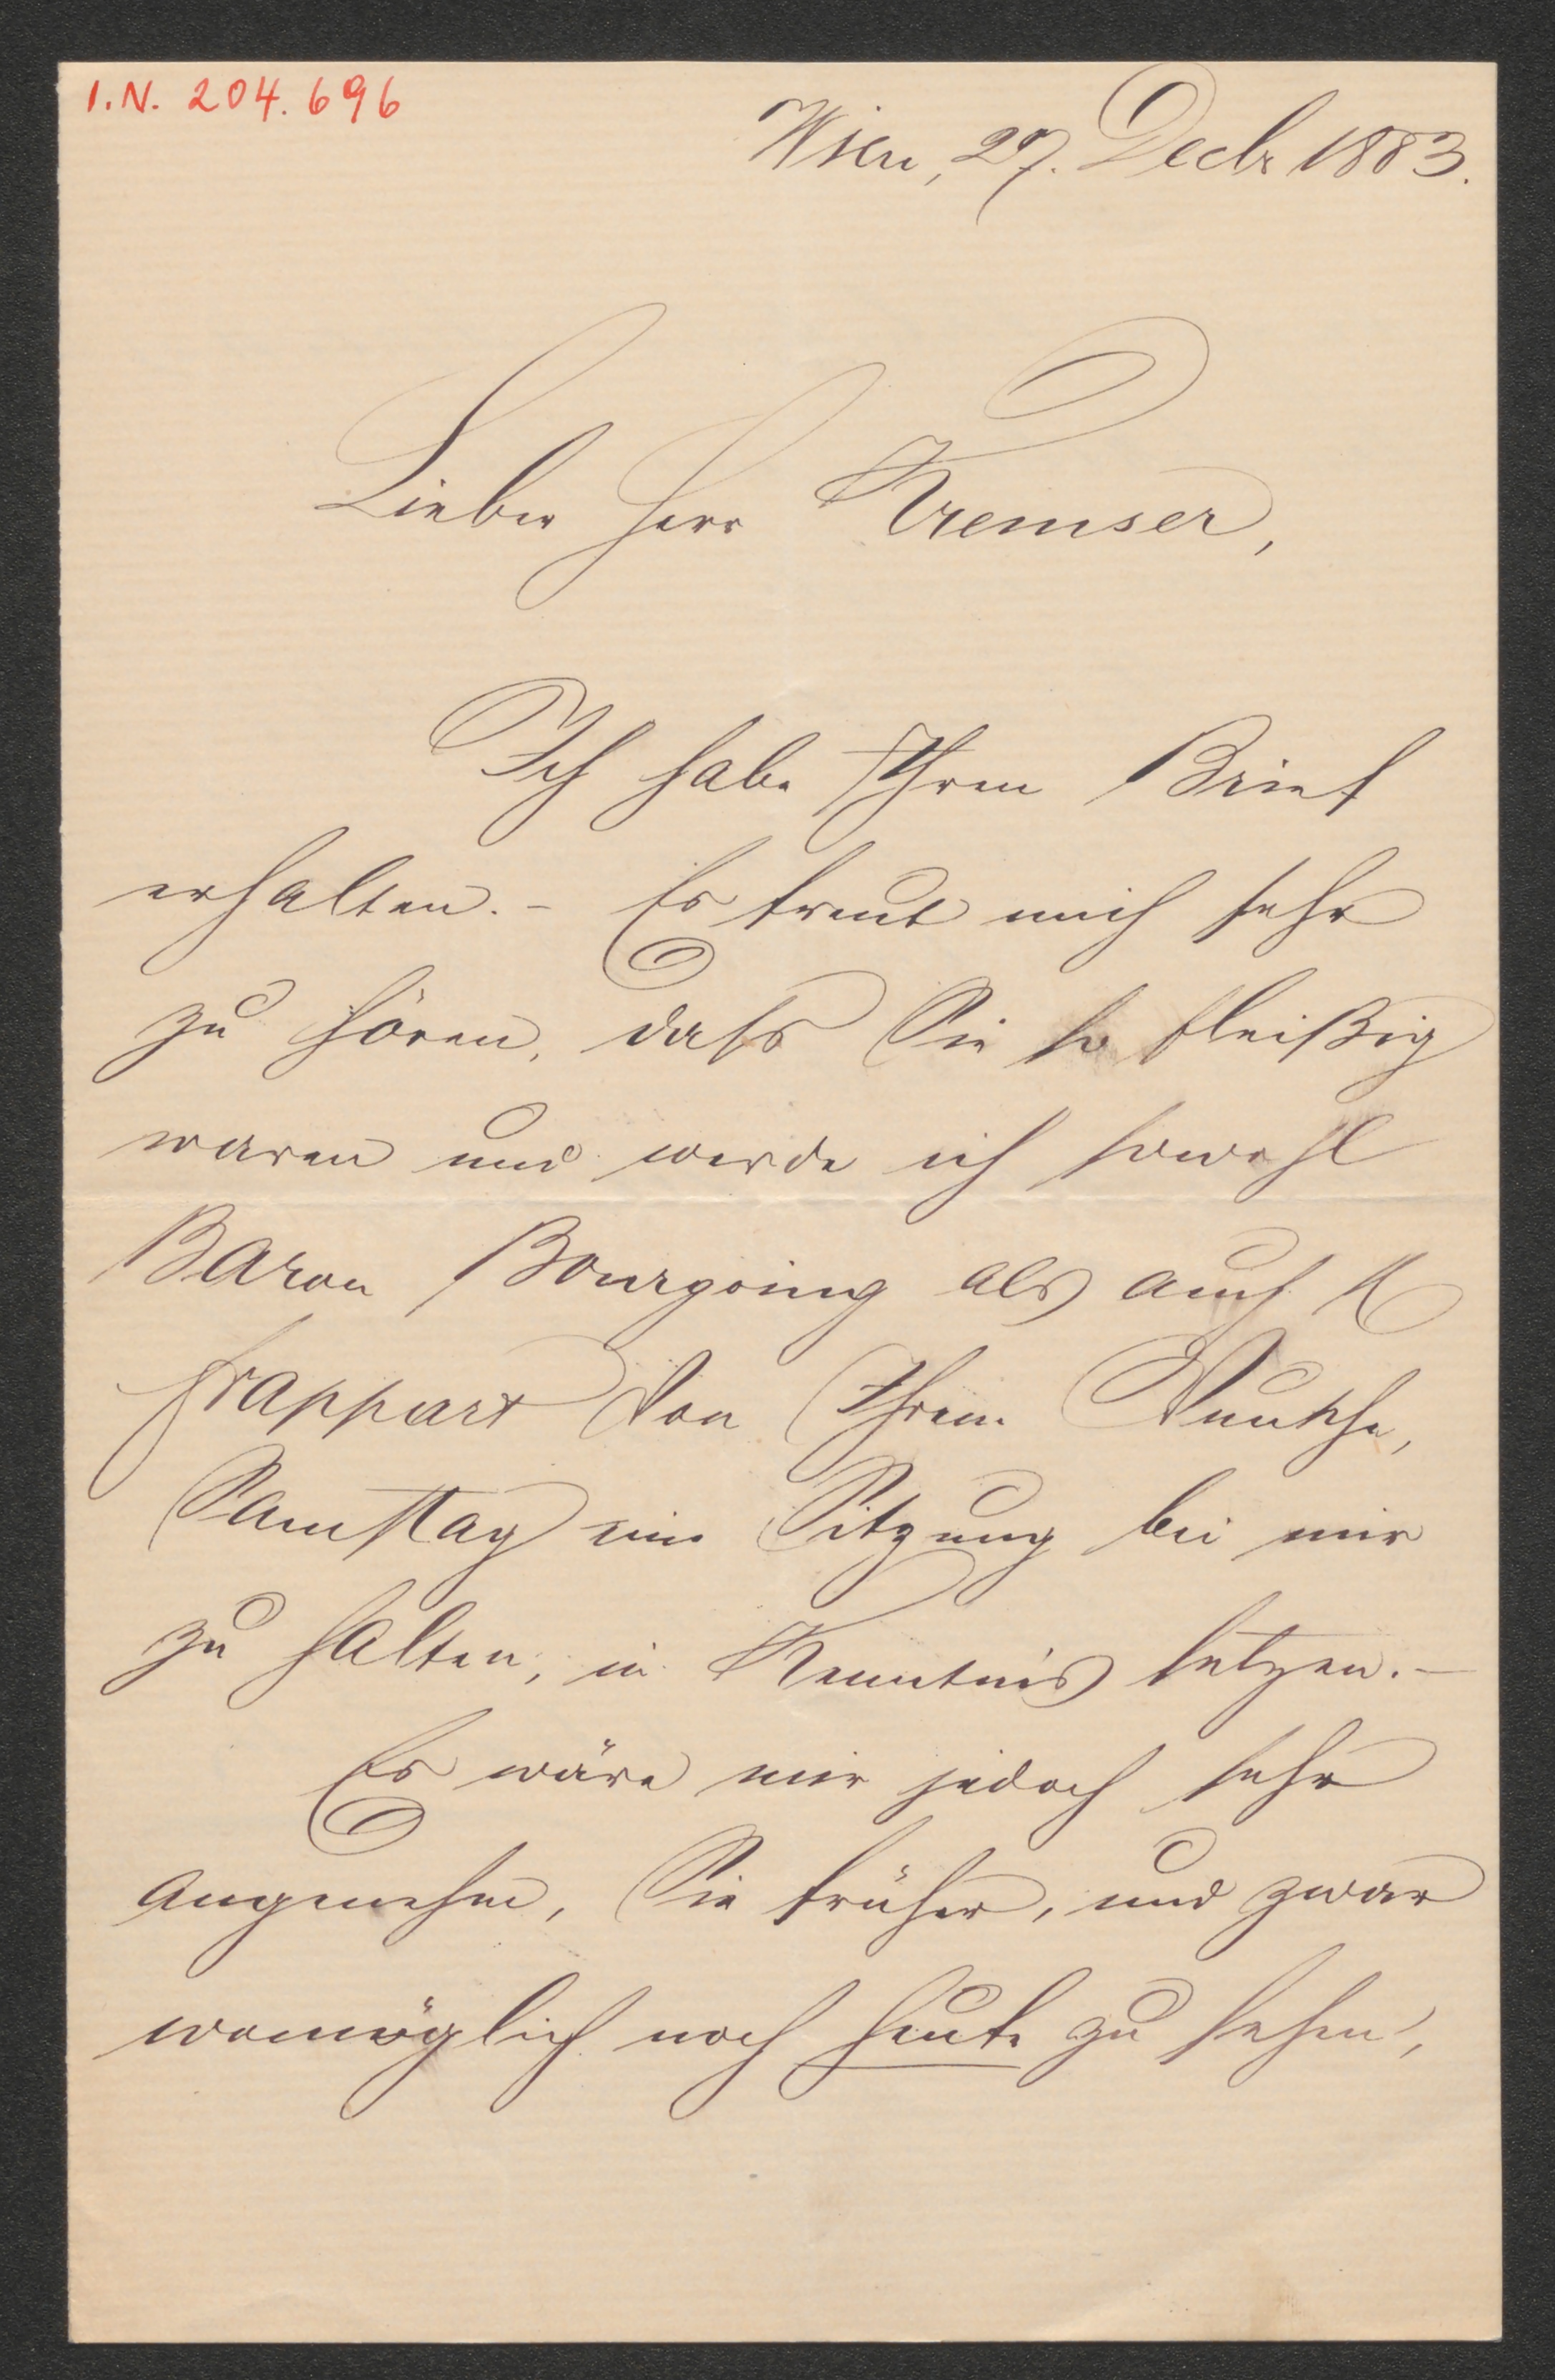 I.N. 204.696
Wien, 27. Decbr 1883.
Lieber Herr Kremser,
Ich habe Ihren Brief
erhalten. – Es freut mich sehr
zu hören, dass Sie so fleißig
waren und werde ich sowohl
Baron Bourgoing als auch
Frappart von Ihrem Wunsche,
Samstag eine Sitzung bei mir
zu halten, in Kenntnis setzen. –
Es wäre mir jedoch sehr
angenehm, Sie früher, und zwar
womöglich noch heute zu sehen,